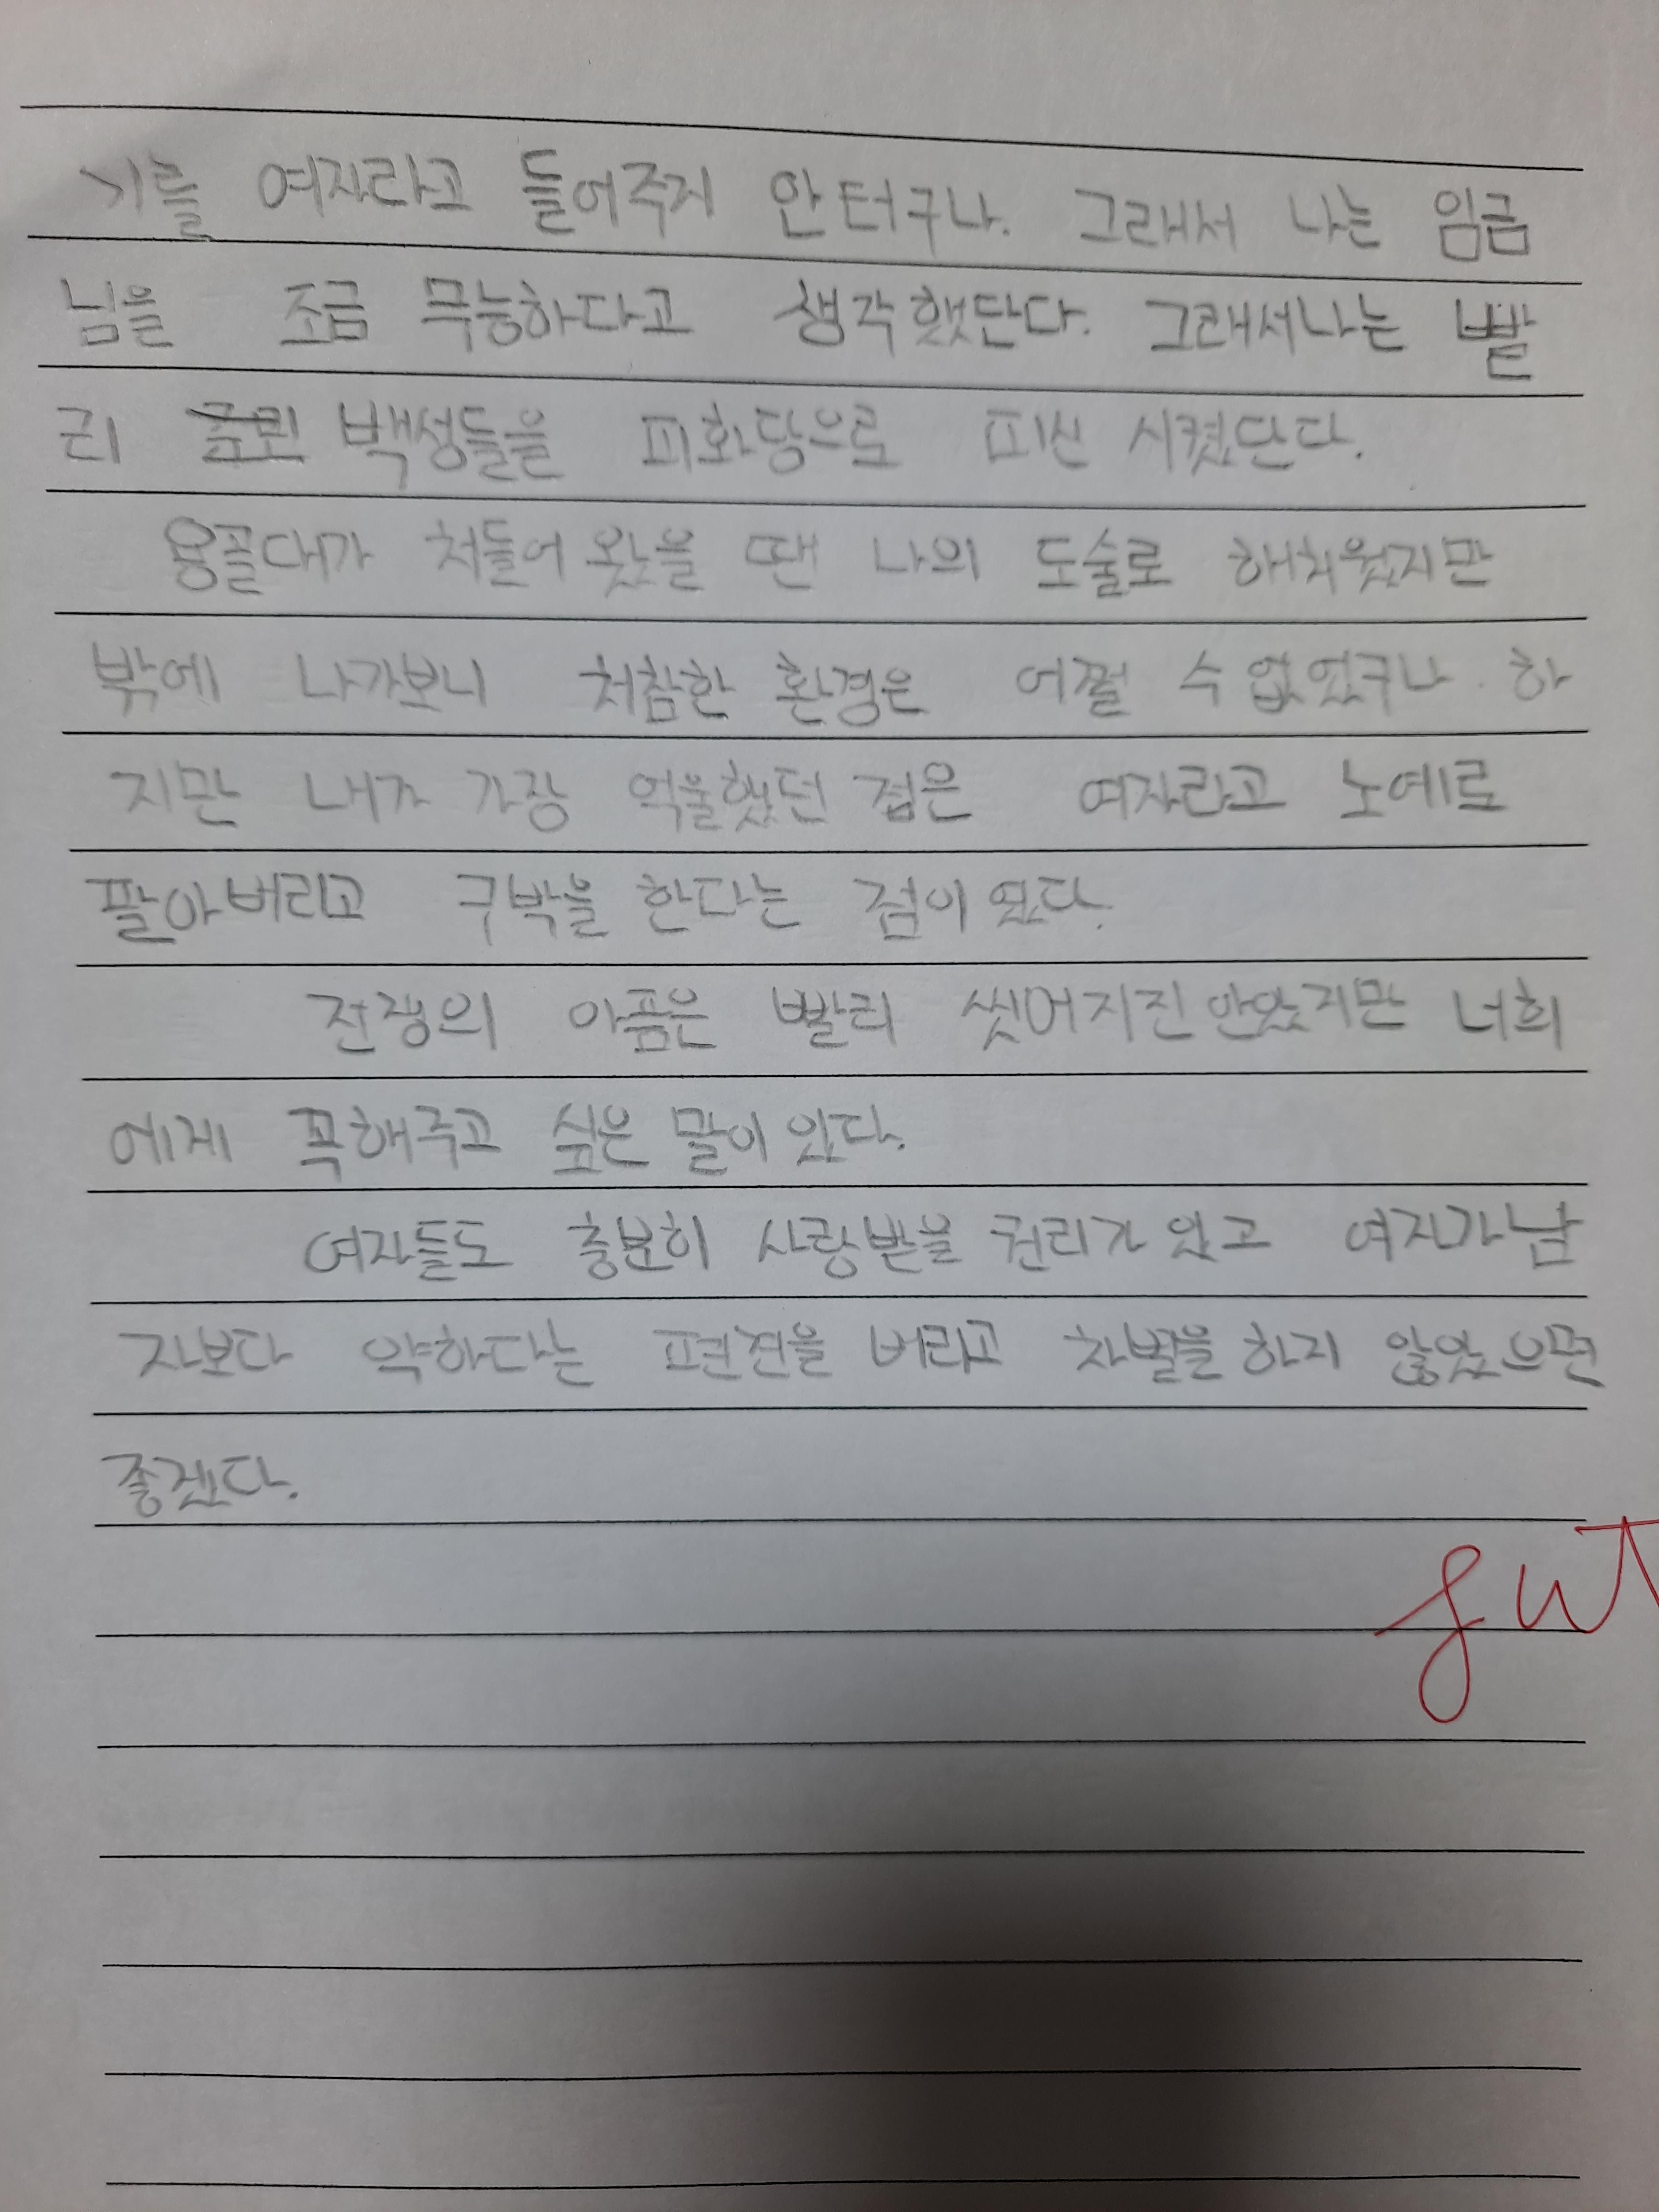 기를 여자라고 들어주지 안터구나. 그래서 나는 임금
님을 조금 무능하다고 생각했단다. 그래서나는 빨
리 백성들을 피화당으로 피신 시켰단다.
용골대가 처들어 왔을 땐 나의 도술로 해치웠지만
밖에 나가보니 처참한 환경은 어쩔 수 없었구나. 하
지만 내가 가장 억울했던 점은 여자라고 노예로
팔아버리고 구박을 한다는 점이 있다.
전쟁의 아픔은 빨리 씻어지진 안았지만 너희
에게 꼭해주고 싶은 말이 있다.
여자들도 충분히 사랑받을 권리가 있고 여자가 남
자보다 약하다는 편견을 버리고 차별을 하지 않았으면
좋겠다.